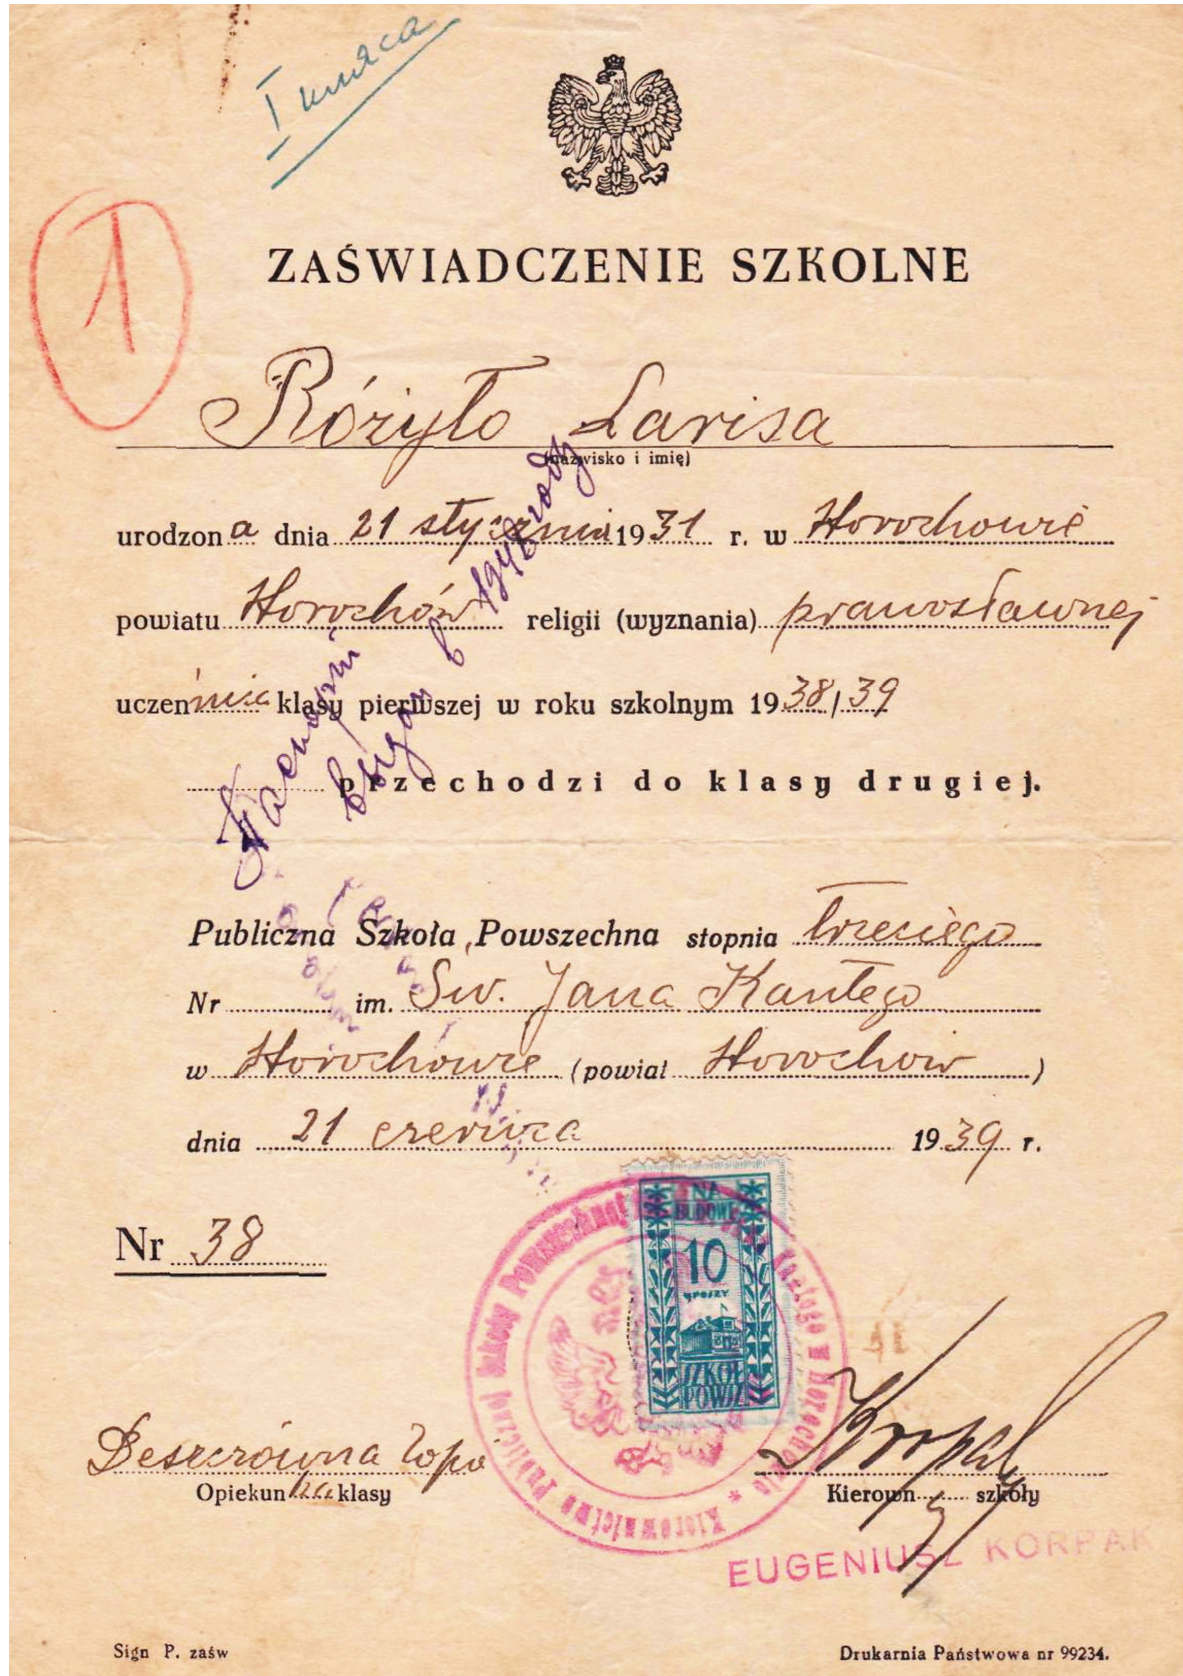 1
ZAŚWIADCZENIE SZKOLNE
Różyło Larisa
(nazwisko i imię)
urodzona dnia 21 stycznia 1931 r. w Horochowie
powiatu Horochów religii (wyznania) prawosławnej
uczennica klasy pierwszej w roku szkolnym 1938/39
przechodzi do klasy drugiej.
Publiczna Szkoła Powszechna stopnia trzeciego
Nr im. Św. Jana Kantego
w Horochowie (powiat Horochów)
dnia 21 czerwca 1939 r.
NA
BUDOWĘ
10
GROSZY
SZKÓŁ
POWSZ.
Nr 38
Kierownictwo Publicznej Szkoły Powszechnej Kantego w Horochowie
Deszczówna
Opiekunka klasy
Korpak
Kierown szkoły
EUGENIUSZ KORPAK
Sign P. zaśw
Drukarnia Państwowa nr 99234.